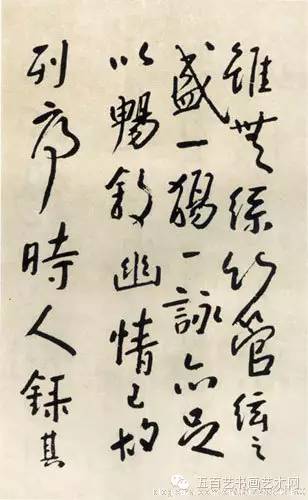 雖無絲竹管絃之
盛一觴一詠亦足
以暢敘幽情已故
列序時人録其
五百艺书画艺术网